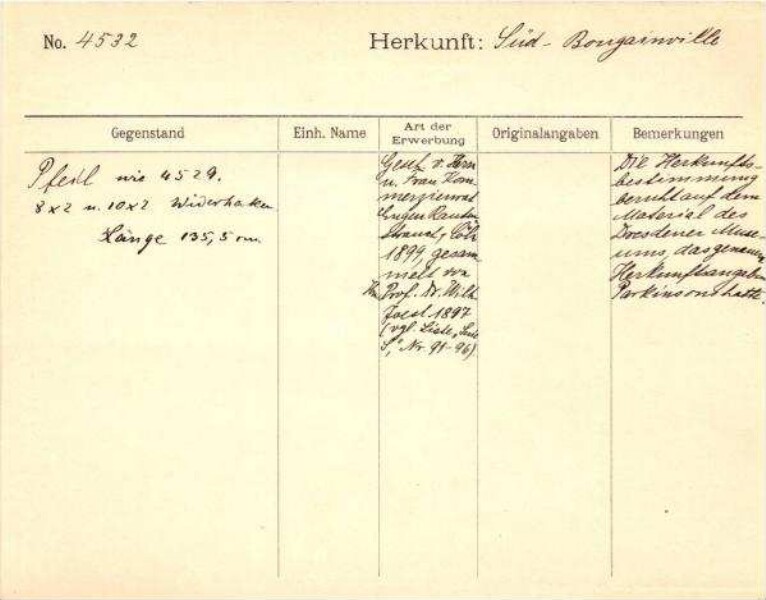 No. 4532
Herkunft: Süd-Bougainville
Gegenstand
Einh. Name
Art der
Erwerbung
Originalangaben
Bemerkungen
Pfeil wie 4529.
8x2 u. 10x2 Widerhaken
Länge 135,5 cm.
Gesch. v. Herrn
u. Frau Kom-
merzienrat
Eugen Rauten-
strauch, Cöln
1899, gesam
melt von
Prof. Dr. Wilh
Joest 1897
(vgl. Liste „
S," Nr. 91-96)
Die Herkunfts-
bestimmung
beruht auf dem
Material des
Dresdener Muse-
ums, das genauere
Herkunftsangaben
Parkinsons hatte.